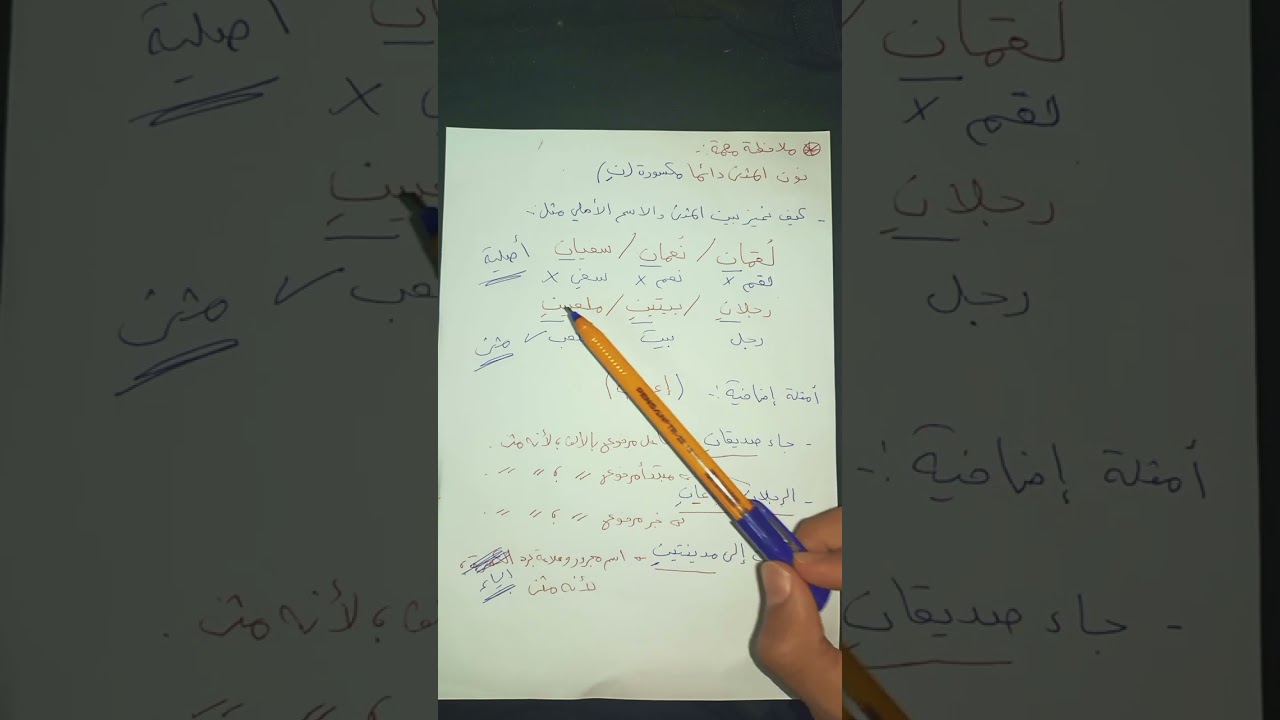 ملاحظة مهمة :-
نون المثنى دائما مكسورة (نِ)
- كيف نميز بين المثنى والاسم الأصلي مثل :-
لُقمان / نُعمان / سفيان أصلية
لقم x نعم x سفي x
رجلانِ / بيتينِ / ملعبينِ
رجل بيت ✓ مثنى
أمثلة إضافية :-
- جاء صديقان مرفوع بالألف ؛ لأنه مثنى .
مبتدأ مرفوع " ؛ " " .
- الرجلان
خبر مرفوع " ؛ " " .
إلى مدينتينِ اسم مجرور وعلامة جره
الياء
لأنه مثنى